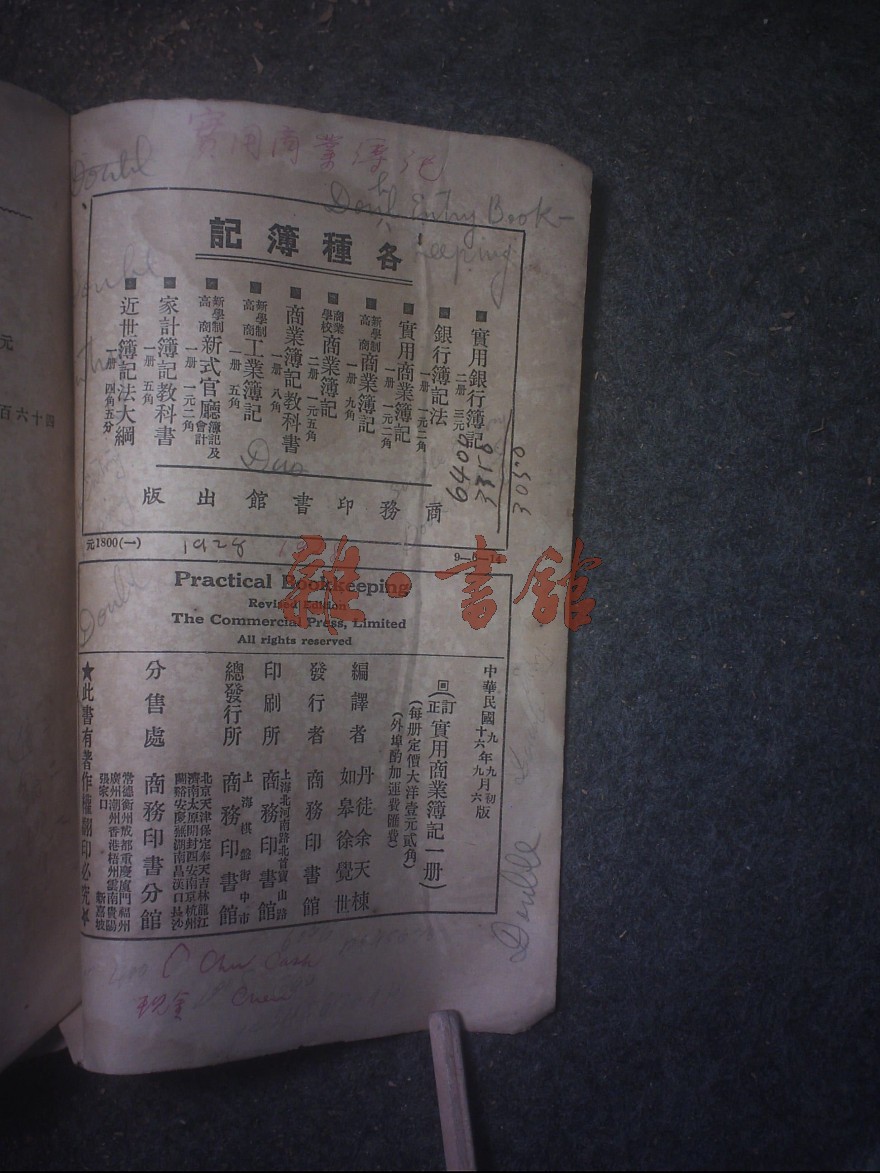 實用商業簿記
Double Entry Book-
keeping
各種簿記
實用銀行簿記
二册 三元
銀行簿記法
一册 一元二角
實用商業簿記
一册 一元二角
新學制高商 商業簿記
一册 九角
商業學校 商業簿記
二册 一元五角
商業簿記教科書
一册 八角
新學制高商 工業簿記
一册 五角
新學制高商 新式官廳簿記及會計
一册 一元二角
家計簿記教科書
一册 五角
近世簿記法大綱
一册 四角五分
6400
3358
3050
商務印書館出版
元1800(一)
1928
雜·書館
Practical Bookkeeping
Revised Edition
The Commercial Press, Limited
All rights reserved
中華民國九年九月初版
十六 九 六
(訂正實用商業簿記一册)
(每册定價大洋壹元貳角)
(外埠酌加運費匯費)
編譯者 丹徒余天棟
如皋徐覺世
發行者 商務印書館
印刷所 上海北河南路北首寶山路
商務印書館
總發行所 上海棋盤街中市
商務印書館
分售處 商務印書分館
北京天津保定奉天吉林龍江
濟南太原開封西安南京杭州
蘭谿安慶蕪湖南昌漢口長沙
常德衡州成都重慶廈門福州
廣州潮州香港梧州雲南貴陽
張家口 新嘉坡
★此書有著作權翻印必究★
Double
Cash
現金